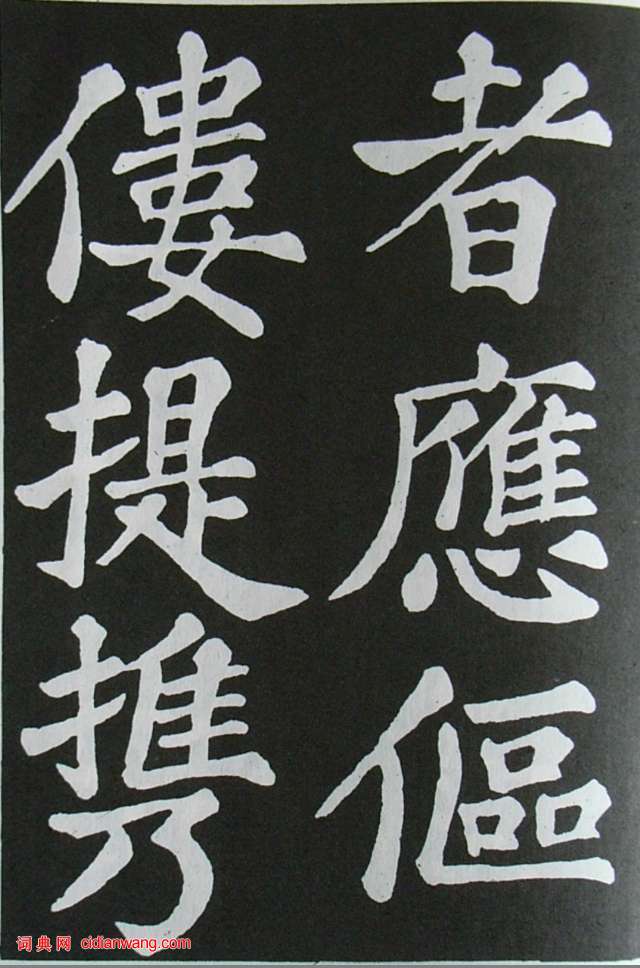 者應傴
僂提攜
词典网 cidianwang.com